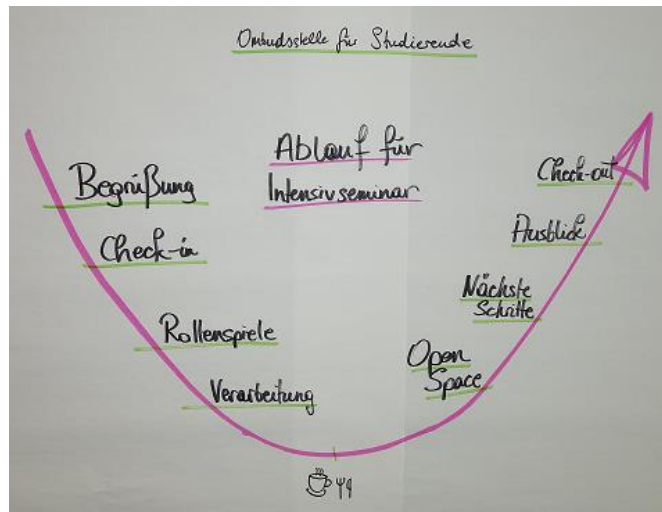 Ombudsstelle für Studierende
Ablauf für
Intensivseminar
Begrüßung
Check-in
Rollenspiele
Verarbeitung
Open
Space
Nächste
Schritte
Ausblick
Check-out